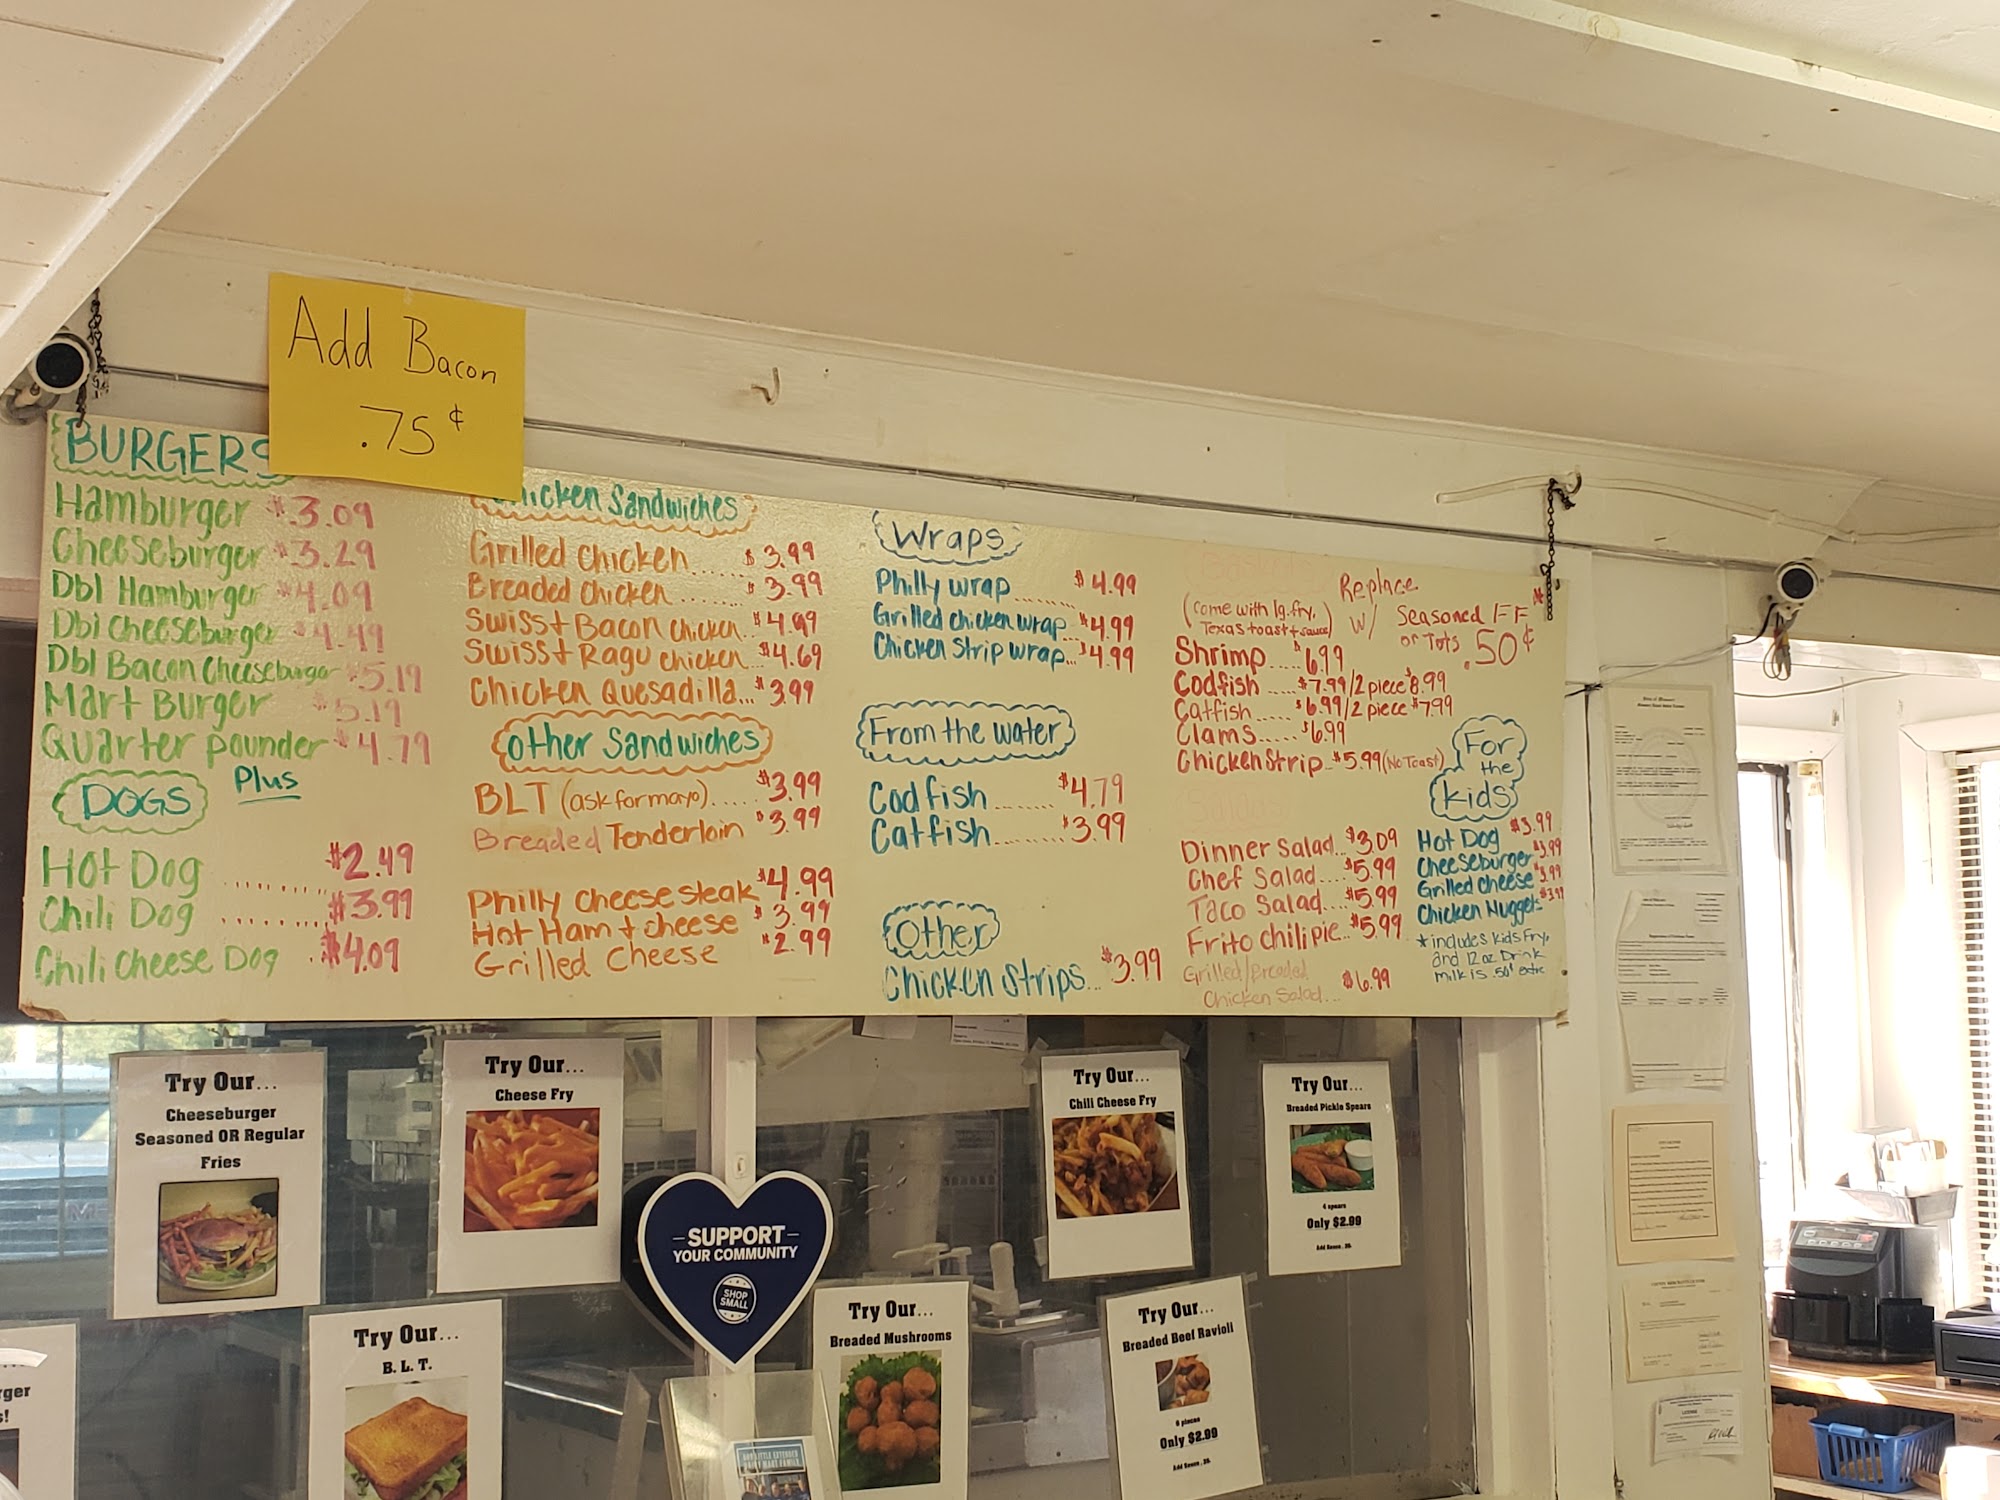 Add Bacon
.75¢
BURGERS
Hamburger $3.09
Cheeseburger $3.29
Dbl Hamburger $4.09
Dbl Cheeseburger $4.49
Dbl Bacon Cheeseburger $5.19
Mart Burger $5.19
Quarter pounder $4.79
Plus
DOGS
Hot Dog ........ $2.49
Chili Dog ........ $3.99
Chili Cheese Dog . $4.09
Chicken Sandwiches
Grilled Chicken ...... $3.99
Breaded Chicken ....... $3.99
Swiss + Bacon Chicken.. $4.99
Swiss + Ragu chicken... $4.69
Chicken Quesadilla... $3.99
other Sandwiches
BLT (ask for mayo)...... $3.99
Breaded Tenderloin $3.99
Philly cheese steak $4.99
Hot Ham + cheese $3.99
Grilled Cheese $2.99
Wraps
Philly wrap ........ $4.99
Grilled chicken wrap.. $4.99
Chicken Strip wrap... $4.99
From the water
Codfish ........ $4.79
Catfish ......... $3.99
Other
Chicken Strips... $3.99
Baskets
(come with lg. fry,
Texas toast + sauce)
Replace
w/ Seasoned FF *
or Tots .50¢
Shrimp .... $6.99
Codfish ..... $7.99/2 piece $8.99
Catfish ..... $6.99/2 piece $7.99
Clams ..... $6.99
Chicken Strip.. $5.99 (No Toast)
Salads
Dinner Salad.. $3.09
Chef Salad.... $5.99
Taco Salad... $5.99
Frito chili pie.. $5.99
Grilled/Breaded
Chicken Salad... $6.99
For
the
Kids
Hot Dog $3.99
Cheeseburger $3.99
Grilled cheese $3.99
Chicken Nuggets $3.99
*includes kids fry,
and 12 oz Drink
milk is .50¢ extra
Try Our...
Cheeseburger
Seasoned OR Regular
Fries
Try Our...
Cheese Fry
Try Our...
Chili Cheese Fry
Try Our...
Breaded Pickle Spears
4 spears
Only $2.99
Try Our...
B. L. T.
SUPPORT
YOUR COMMUNITY
SHOP
SMALL
Try Our...
Breaded Mushrooms
Try Our...
Breaded Beef Ravioli
6 pieces
Only $2.99